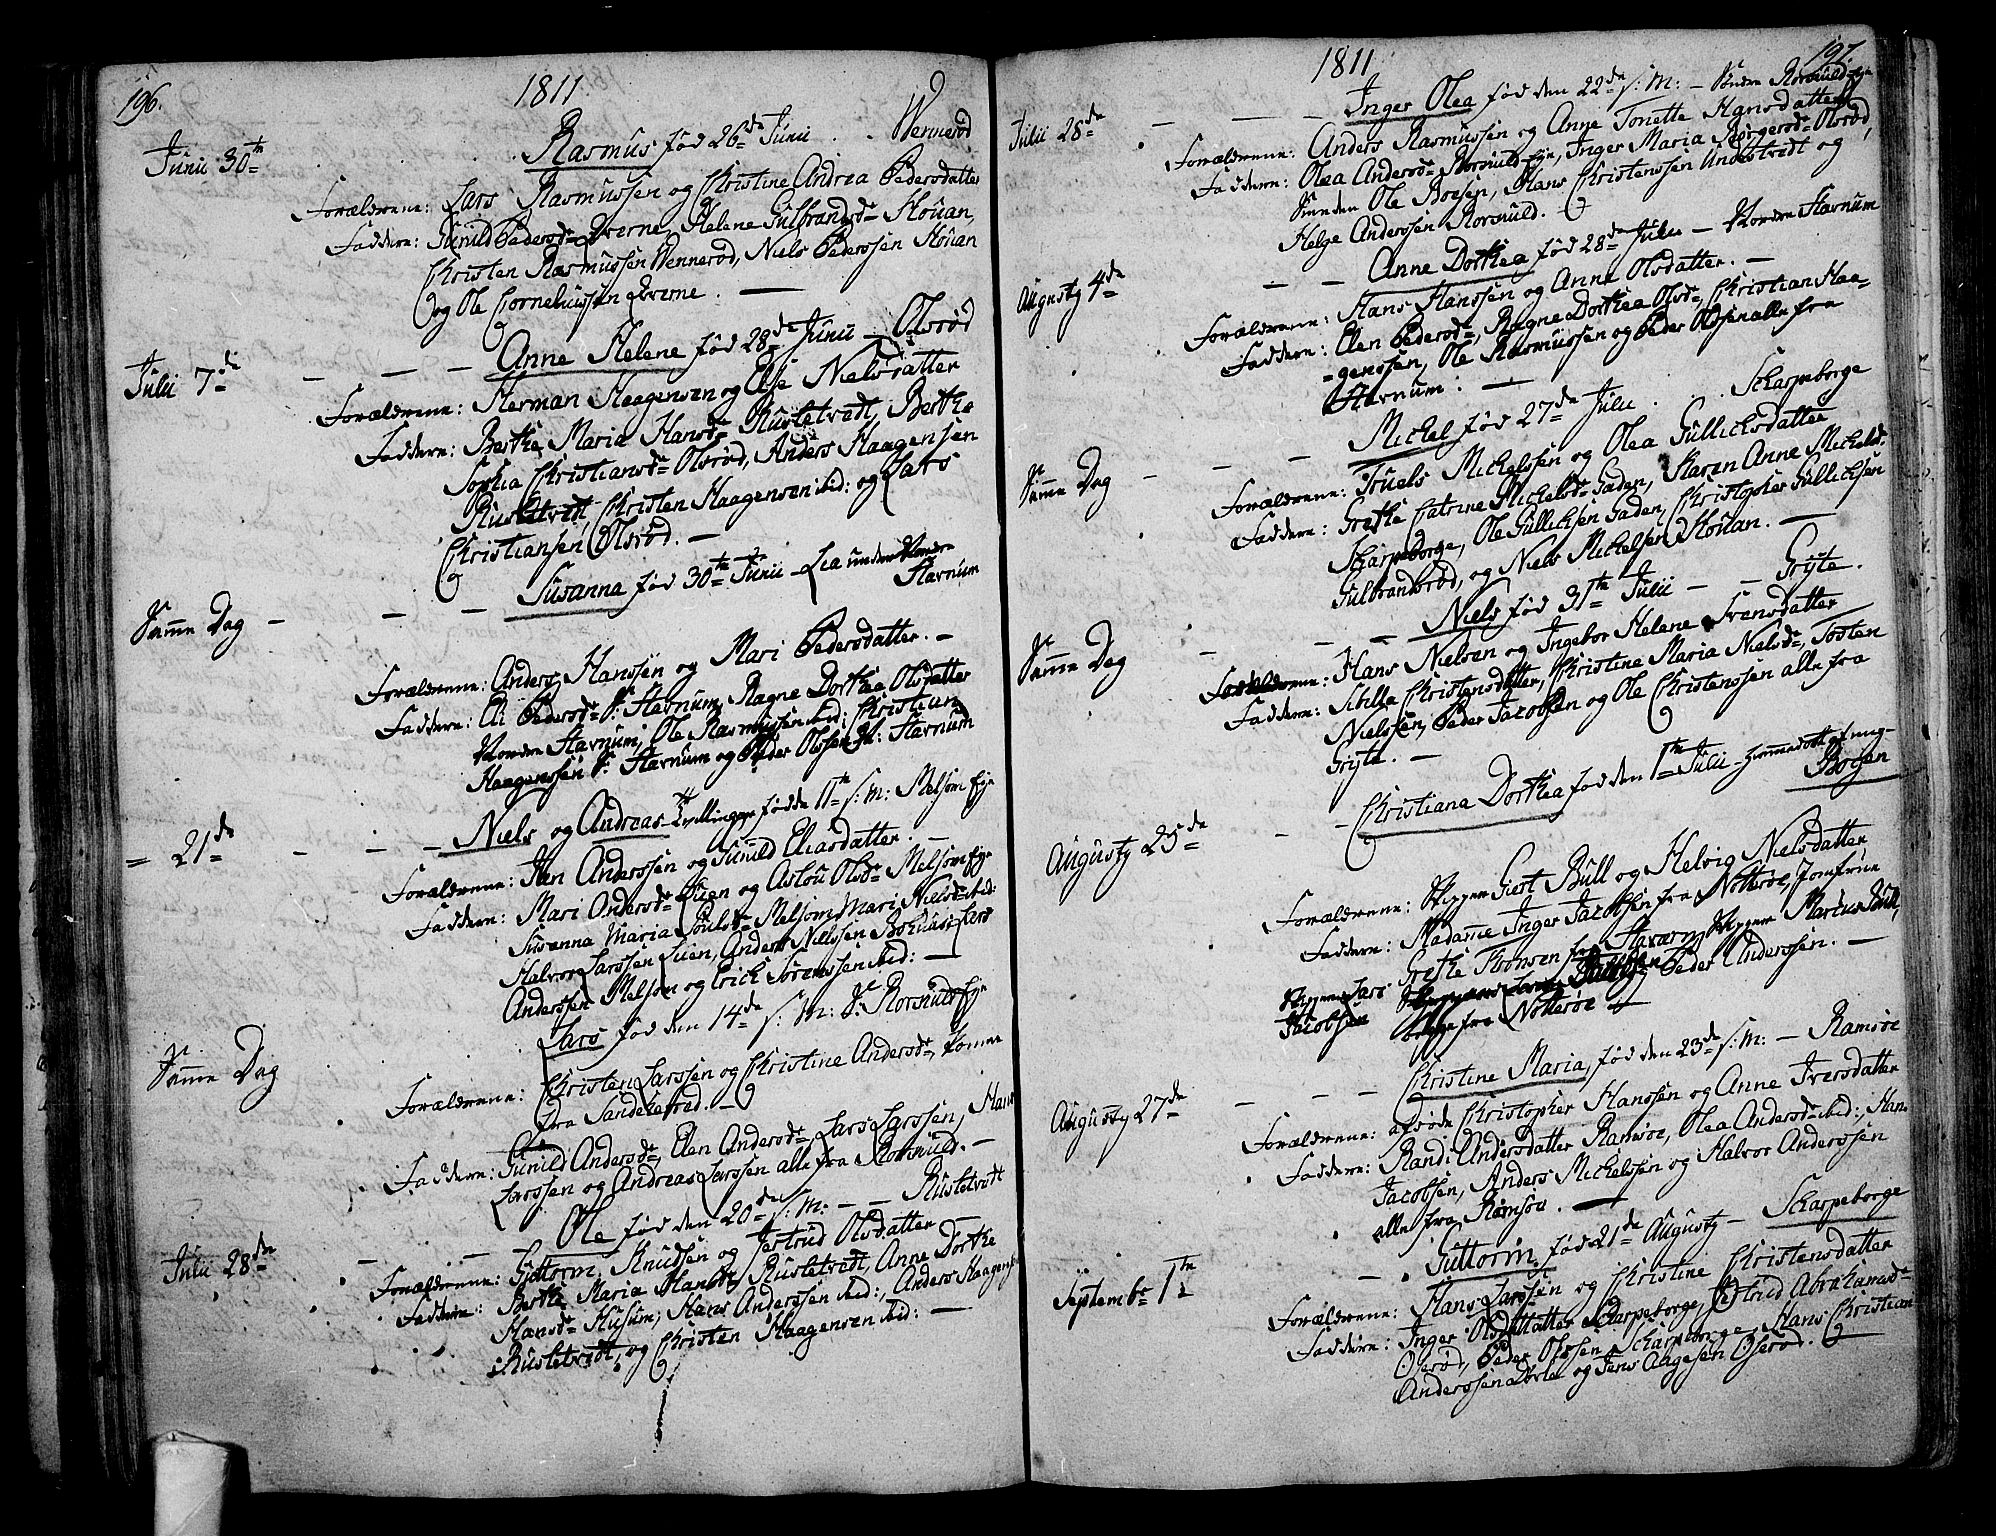 196.
1811
Junii 30te
Rasmus fød 26de Junii . - Wennerød
Forældrene: Lars Rasmussen og Christine Andrea Pedersdatter
Faddere: Gunild Pedersd: Qverne, Helene Gulbrandsd: Houan,
Christen Rasmussen Wennerød, Niels Pederssen Houan
og Ole Corneliussen Qverne. —
Julii 7de
Anne Helene fød 28de Junii - Olsrød
Forældrene: Herman Haagensen og Else Nielsdatter
Faddere: Berthe Maria Hansd: Rustetvedt, Berthe
Sophia Christiansd: Olsrød, Anders Haagensen
Rustetvedt, Christen Haagensen ibid: og Lars
Christiansen Olsrød. —
Samme Dag
Susanna fød 30te Junii - Lia under Nordre
Havnum
Forældrene: Anders Hanssen og Mari Pedersdatter. —
Faddere: Eli Pedersd: S: Havnum, Ragne Dorthea Olsdatter
Nordre Havnum, Ole Rasmussen ibid: Christian
Haagenssen S: Havnum og Peder Olssen N: Havnum
= 21de
Niels og Andreas Tvillinger fødde 11te s: M: Melsom Eje
Forældrene: Jan Anderssen og Gunild Eliasdatter. —
Faddere: Mari Andersd: Lüen og Aslou Olsd: Melsom Eje
Susanna Maria Poulsd: Melsom, Mari Nielsd: ibid:
Halvor Larssen Lüen, Anders Nielssen Bohuus, Lars
Anderssen Melsom og Erich Svenssen ibid: —
Samme Dag
Lars fød den 14de s: M: S: Rorsnuld Eje
Forældrene: Christen Larssen og Christine Andersd: komne
fra Sandeherred. —
Faddere: Gunild Andersd: Elen Andersd: Lars Larssen, Hans
Larssen og Andreas Larssen alle fra Rorsnuld. —
Julii 28de
Ole fød den 20de s: M: — Rustetvedt
Forældrene: Guttorm Knudsen og Jertrud Olsdatter —
Faddere: Berthe Maria Hansd: Rustetvedt, Anne Dorthe
Hansd: Husum, Hans Anderssen ibid:, Anders Haagens:
Rustetvedt, og Christen Haagensen ibid: —
197.
1811
Julii 28de
Inger Olea fød den 22de s: M: — Søndre Rorsnuld Eje
Forældrene: Anders Rasmussen og Anne Tonette Hansdatter
Faddere: Olea Andersd: Rorsnuld Eje, Inger Maria Børgersd: Olsrød,
Smeden Ole Boesen, Hans Christenssen Undestvedt og
Helge Anderssen Rorsnuld.
Augusty 4de
Anne Dorthea fød 28de Julii — Nordre Havnum
Forældrene: Hans Hanssen og Anne Olsdatter. —
Faddere: Elen Pedersd: Ragne Dorthea Olsd: Christian Haa-
=genssen, Ole Rasmussen og Peder Olssen alle fra
Havnum. —
Samme Dag
Mickel fød 27de Julii . . Scharpeborge
Forældrene: Truels Michelssen og Olea Gullichsdatter
Faddere: Grethe Catrine Michelsd: Gaden, Karen Anne Michelsd:
Scharpeborge, Ole Gullichsen Gaden, Christopher Gullichsen
Gulbrandsrød, og Niels Michelsen Houan. —
Samme Dag
Niels fød 31te Julii — — Gryte.
Forældrene: Hans Nielsen og Ingebor Helene Svensdatter
Faddere: Sibilla Christensdatter, Christine Maria Nielsd: Tosten
Nielssen, Peder Jacobsen og Ole Christenssen alle fra
Gryte. —
Augusty 25de
Christiana Dorthea fød den 1te Julii - hjemmedøbt af mig -
Bogen
Forældrene: Skipper Giert Bull og Helvig Nielsdatter
Faddere: Madame Inger Jacobsen fra Nøtterøe, Jomfrue
Grethe Thonsen fra Staværn, Skipper Marius Bull,
Skipper Lars Jacobsen Peder Anderssen. —
fra Nøtterøe
Augusty 27de
Christine Maria, fød den 23de s: M: — Ramsøe
Forældrene: afdøde Christopher Hanssen og Anne Iversdatter
Faddere: Randi Andersdatter Ramsøe, Olea Andersd: ibid:, Hans
Jacobsen, Anders Michelssen og Halvor Anderssen
alle fra Ramsøe. —
Septembr 1te
Guttorm fød 21de Augusty — Scharpeborge
Forældrene: Hans Larssen og Christine Christensdatter
Faddere: Inger Olsdatter Scharpeborge, Ostrid Abrahamsd:
Oserød, Peder Olssen Scharpeborge, Hans Christian
Anderssen og Jens Aagesen Oserød. —